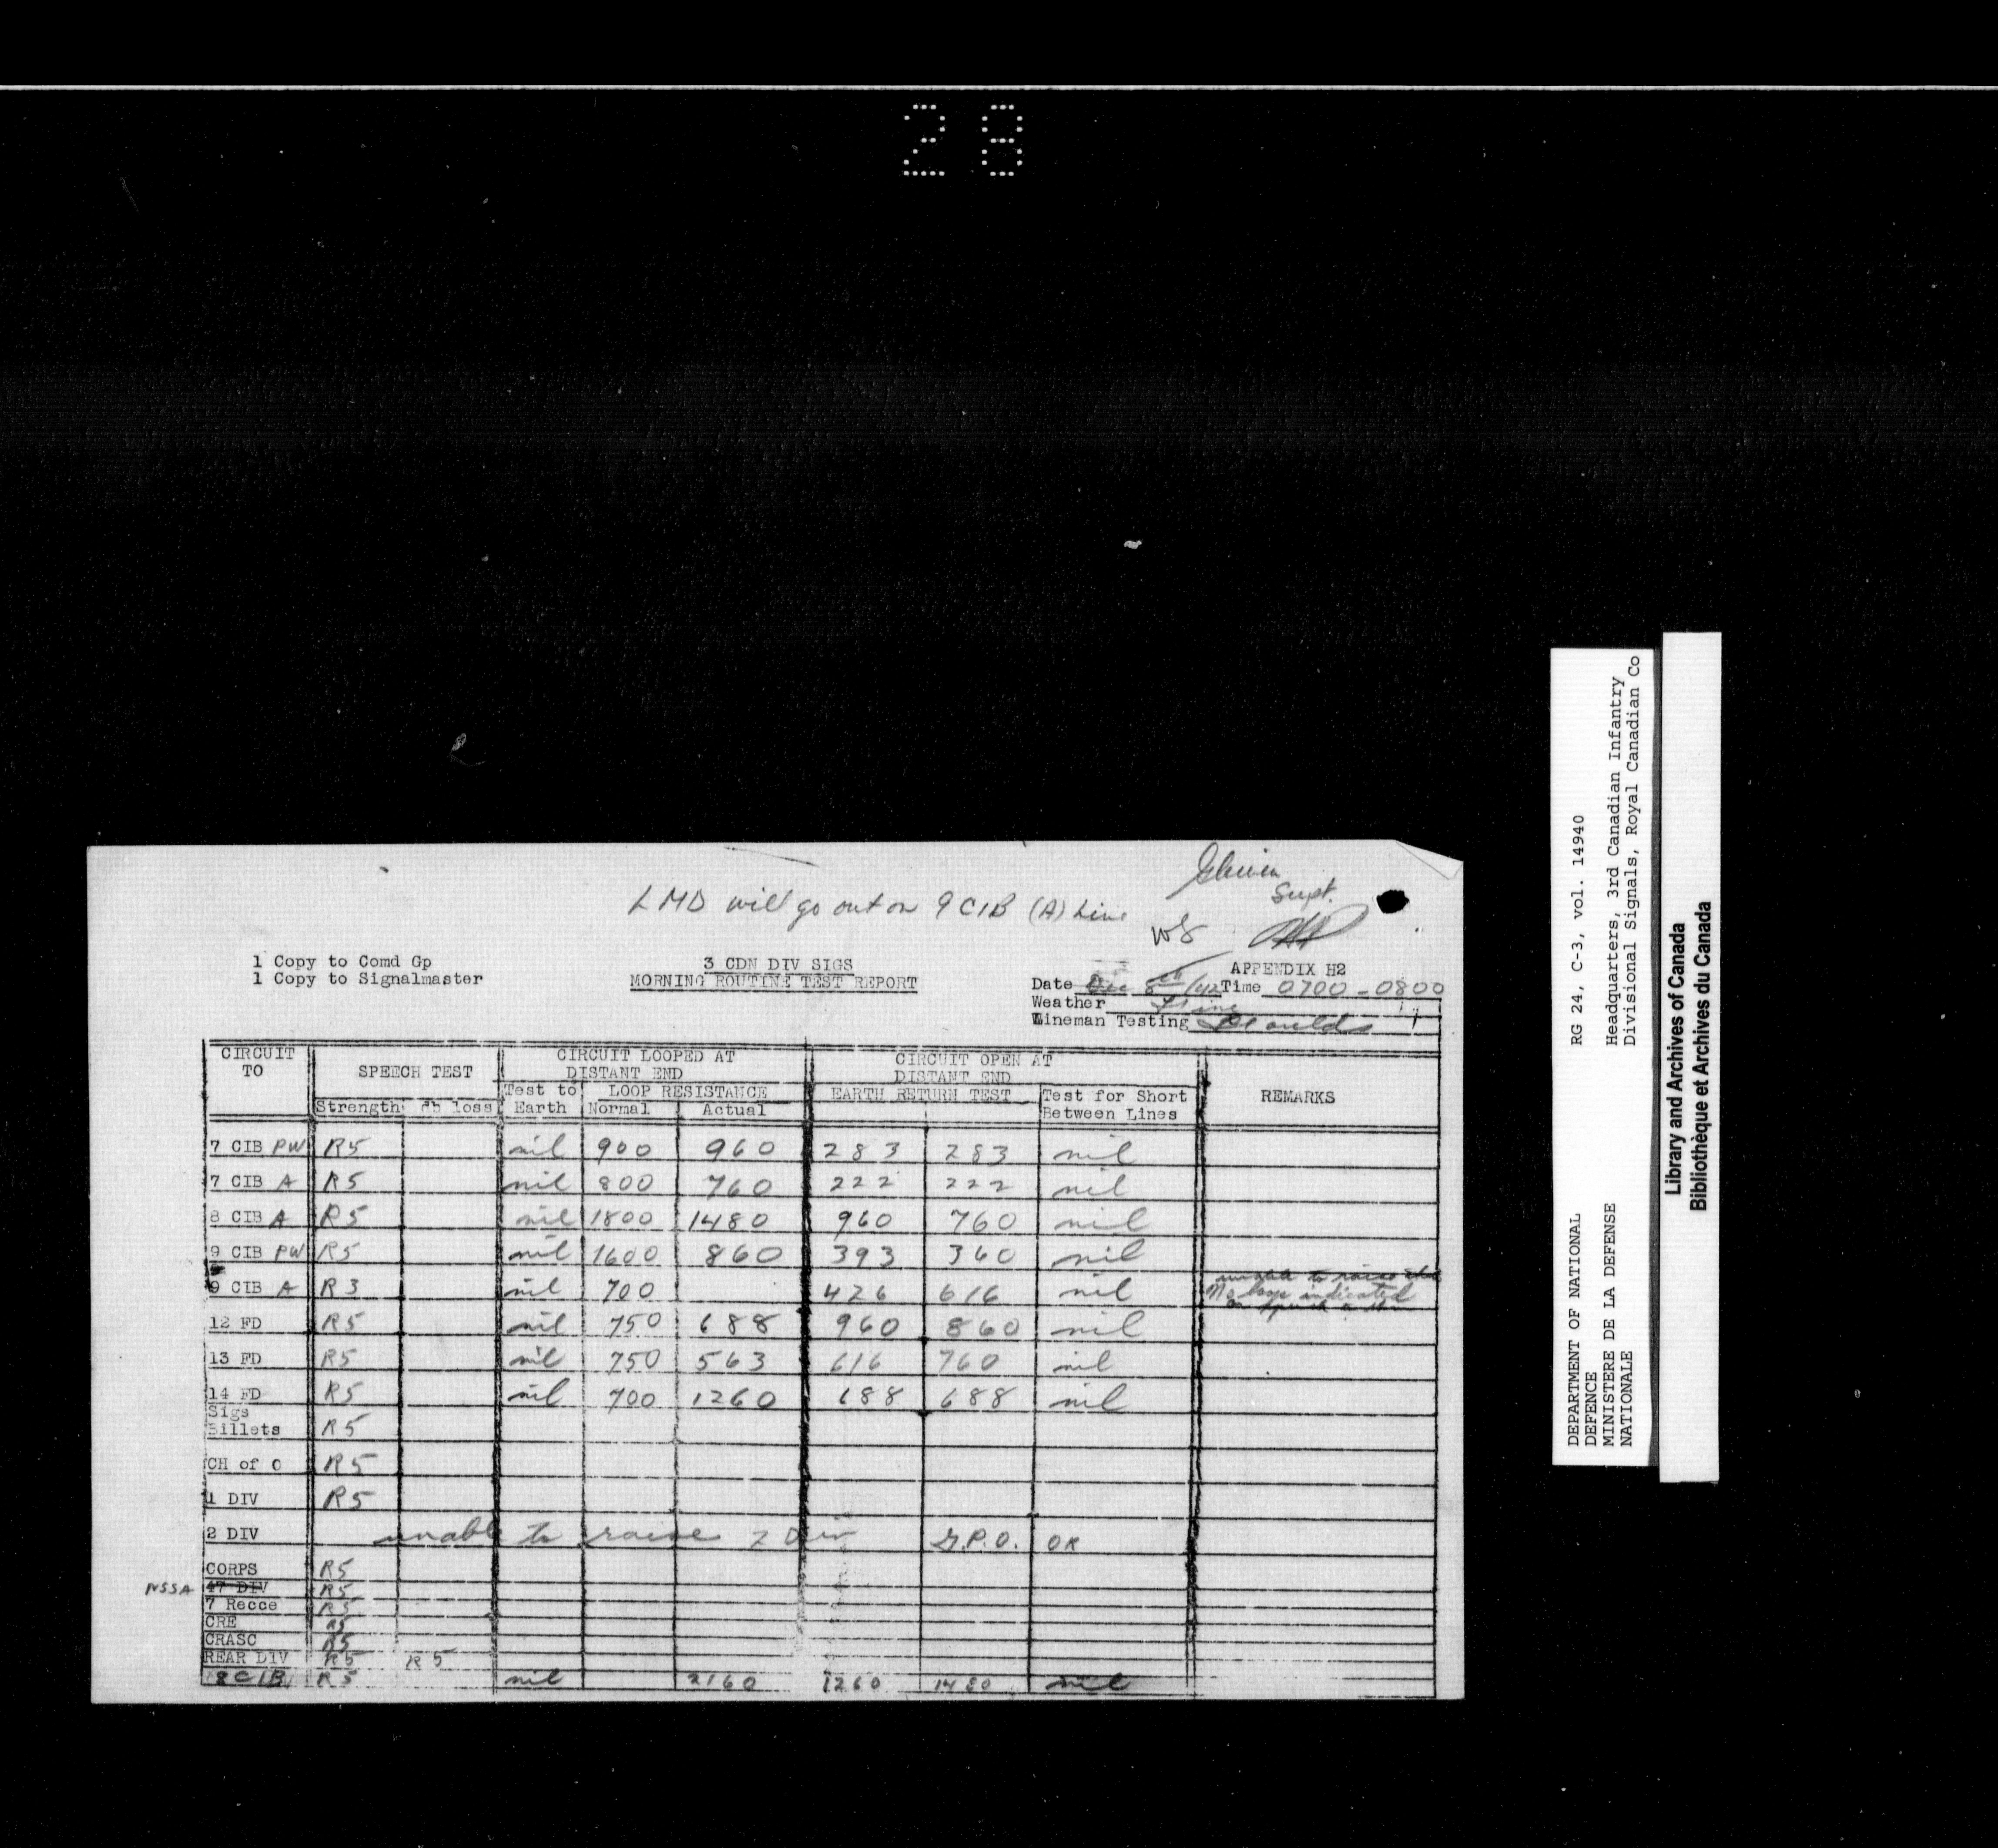 28
Supt.
LMD will go out on 9 CIB (A) Line
1 Copy to Comd Gp
1 Copy to Signalmaster
3 CDN DIV SIGS
MORNING ROUTINE TEST REPORT
APPENDIX H2
Date Dec 8th/42 Time 0700-0800
Weather Fine
Lineman Testing
CIRCUIT TO
SPEECH TEST
Strength db loss
CIRCUIT LOOPED AT DISTANT END
Test to Earth
LOOP RESISTANCE
Normal Actual
CIRCUIT OPEN AT DISTANT END
EARTH RETURN TEST
Test for Short Between Lines
REMARKS
7 CIB PW R5 nil 900 960 283 283 nil
7 CIB A R5 nil 800 760 222 222 nil
8 CIB A R5 nil 1800 1480 960 760 nil
9 CIB PW R5 nil 1600 860 393 360 nil
9 CIB A R3 nil 700 426 616 nil unable to raise No loop indicated
12 FD R5 nil 750 688 960 860 nil
13 FD R5 nil 750 563 616 760 nil
14 FD R5 nil 700 1260 688 688 nil
Sigs Billets R5
CH of O R5
1 DIV R5
2 DIV unable to raise 2 Div G.P.O. OK
CORPS R5
NSSA 47 DIV R5
7 Recce R5
CRE R5
CRASC R5
REAR DIV R5 R5
8 CIB R5 nil 2160 1260 1480 nil
DEPARTMENT OF NATIONAL DEFENCE
MINISTERE DE LA DEFENSE NATIONALE
RG 24, C-3, vol. 14940
Headquarters, 3rd Canadian Infantry
Divisional Signals, Royal Canadian Co
Library and Archives of Canada
Bibliothèque et Archives du Canada